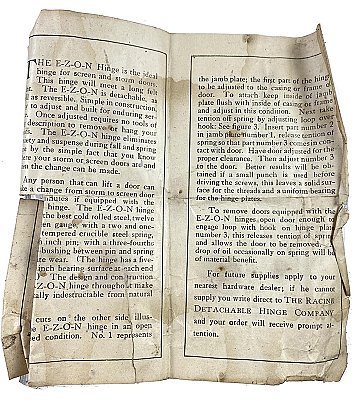 THE E-Z-O-N Hinge is the ideal
hinge for screen and storm doors.
This hinge will meet a long felt
The E-Z-O-N is detachable, as
as reversible. Simple in construction,
to adjust and built for enduring ser-
Once adjusted requires no tools of
description to remove or hang your
The E-Z-O-N hinge eliminates
and suspense during fall and spring
by the simple fact that you know
ere your storm or screen doors are and
the change can be made.
Any person that can lift a door can
a change from storm to screen door
inutes if equipped with the
hinge. The E-Z-O-N hinge
the best cold rolled steel, twelve
gauge, with a two and one-
tempered crucible steel spring,
inch pin; with a three-fourths
bushing between pin and spring
wear. (The hinge has a five-
inch bearing surface at each end
The design and construction
E-Z-O-N hinge throughout make
ically indestructable from natural
cuts on the other side illus-
E-Z-O-N hinge in an open
ed condition. No. 1 represents
the jamb plate; the first part of the hinge
to be adjusted to the casing or frame
door. To attach keep inside of jamb
plate flush with inside of casing or frame
and adjust in this condition. Next take
tention off spring by adjusting loop over
hook: See figure 3. Insert part number 2
in jamb plate number 1, release tention of
spring so that part number 3 comes in con-
tact with door. Have door adjusted for the
proper clearance. Then adjust number 3
to the door. Better results will be ob-
tained if a small punch is used before
driving the screws, this leaves a solid sur-
face for the threads and a uniform bearing
for the hinge plates.
To remove doors equipped with the
E-Z-O-N hinges open door enough to
engage loop with hook on hinge plate
number 3, this releases tention of spring
and allows the door to be removed. A
drop of oil occasionally on spring will be
of material benefit.
For future supplies apply to your
nearest hardware dealer; if he cannot
supply you write direct to THE RACINE
DETACHABLE HINGE COMPANY
and your order will receive prompt at-
tention.